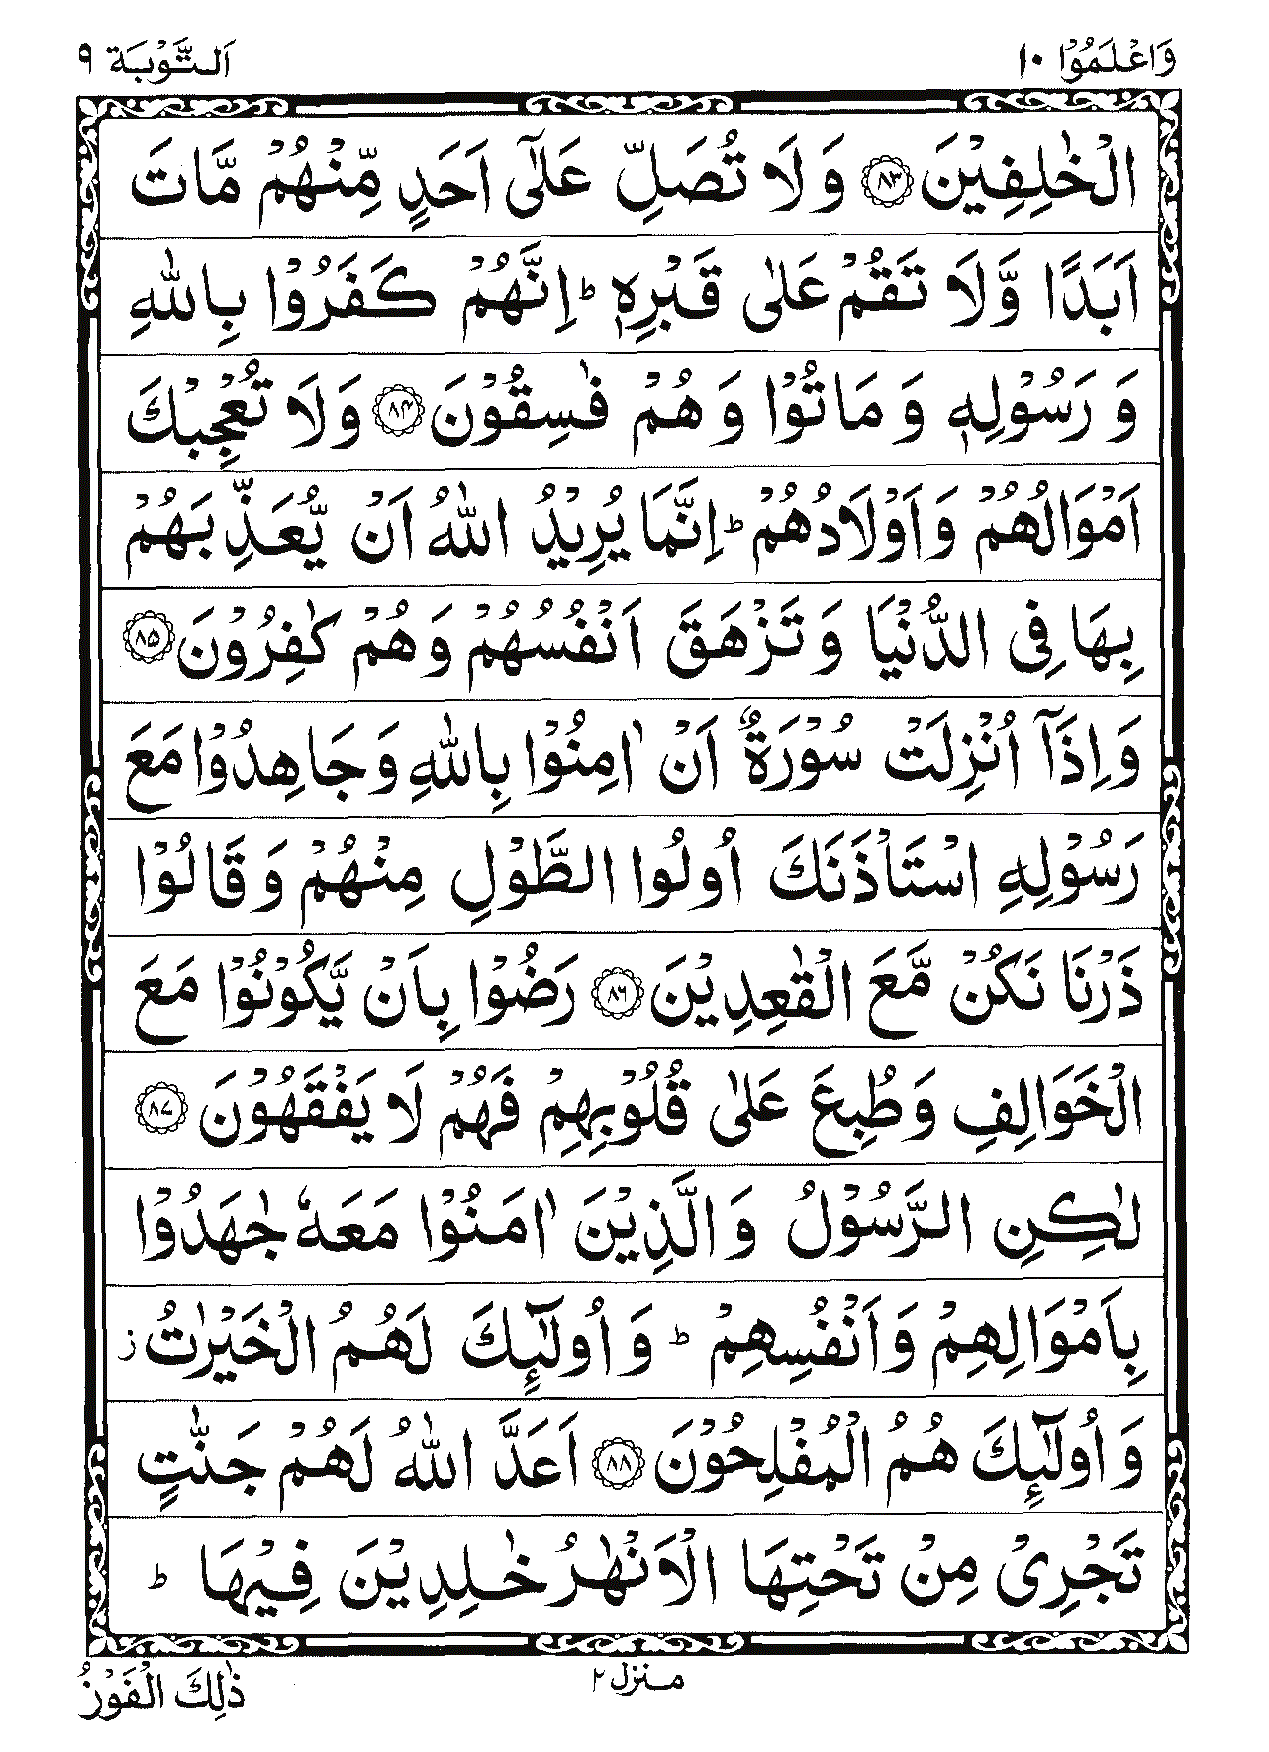 وَاعْلَمُوْا ١٠
اَلتَّوْبَة ٩
الْخٰلِفِيْنَ ﴿٨٣﴾ وَ لَا تُصَلِّ عَلٰٓى اَحَدٍ مِّنْهُمْ مَّاتَ
اَبَدًا وَّلَا تَقُمْ عَلٰى قَبْرِهٖ ؕ اِنَّهُمْ كَفَرُوْا بِاللّٰهِ
وَ رَسُوْلِهٖ وَ مَاتُوْا وَ هُمْ فٰسِقُوْنَ ﴿٨٤﴾ وَلَا تُعْجِبْكَ
اَمْوَالُهُمْ وَاَوْلَادُهُمْ ؕ اِنَّمَا يُرِيْدُ اللّٰهُ اَنْ يُّعَذِّبَهُمْ
بِهَا فِى الدُّنْيَا وَ تَزْهَقَ اَنْفُسُهُمْ وَ هُمْ كٰفِرُوْنَ ﴿٨٥﴾
وَاِذَآ اُنْزِلَتْ سُوْرَةٌ اَنْ اٰمِنُوْا بِاللّٰهِ وَجَاهِدُوْا مَعَ
رَسُوْلِهِ اسْتَاْذَنَكَ اُولُوا الطَّوْلِ مِنْهُمْ وَ قَالُوْا
ذَرْنَا نَكُنْ مَّعَ الْقٰعِدِيْنَ ﴿٨٦﴾ رَضُوْا بِاَنْ يَّكُوْنُوْا مَعَ
الْخَوَالِفِ وَطُبِعَ عَلٰى قُلُوْبِهِمْ فَهُمْ لَا يَفْقَهُوْنَ ﴿٨٧﴾
لٰكِنِ الرَّسُوْلُ وَالَّذِيْنَ اٰمَنُوْا مَعَهٗ جٰهَدُوْا
بِاَمْوَالِهِمْ وَاَنْفُسِهِمْ ؕ وَاُولٰٓئِكَ لَهُمُ الْخَيْرٰتُ ز
وَاُولٰٓئِكَ هُمُ الْمُفْلِحُوْنَ ﴿٨٨﴾ اَعَدَّ اللّٰهُ لَهُمْ جَنّٰتٍ
تَجْرِىْ مِنْ تَحْتِهَا الْاَنْهٰرُ خٰلِدِيْنَ فِيْهَا ؕ
منزل ٢
ذٰلِكَ الْفَوْزُ